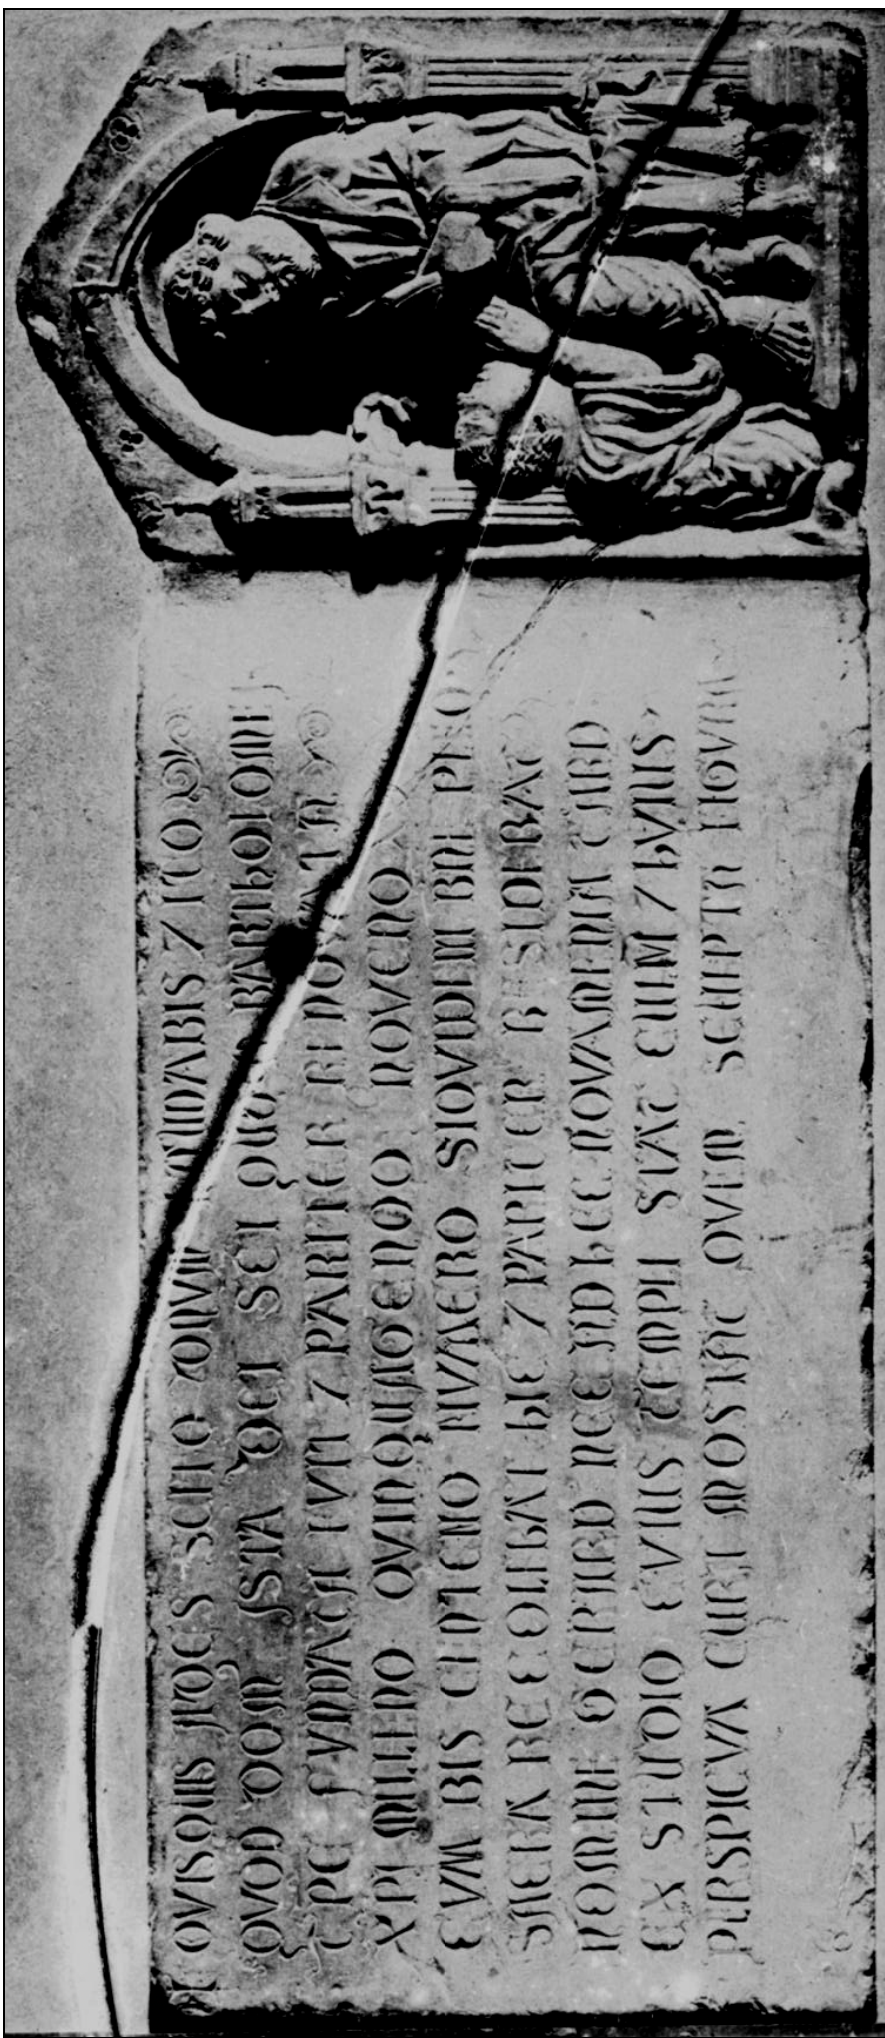 QVISQUIS ADES SCITO MDABIS 7 ITO
QVOD DOM ISTA DEI SCI BARTHOLOMEI
TPE FVNDATA FVIT 7 PARITER RENO ATA
XPI MILLENO QVINQUAGENO NOVENO
CVM BIS CENTENO NVMERO SIQVIDEM BNI PLENO
SACRA RECOLEBAT HIC 7 PARITER RESIDEBAT
NOMINE GERARD NCE AD HEC NOVAMINA TARD
EX STUDIO CVIUS TEMPLI STAT CULM 7 HVIUS
PERSPICVA CURA MOSTAT QVEM SCULPTA FIGVRA